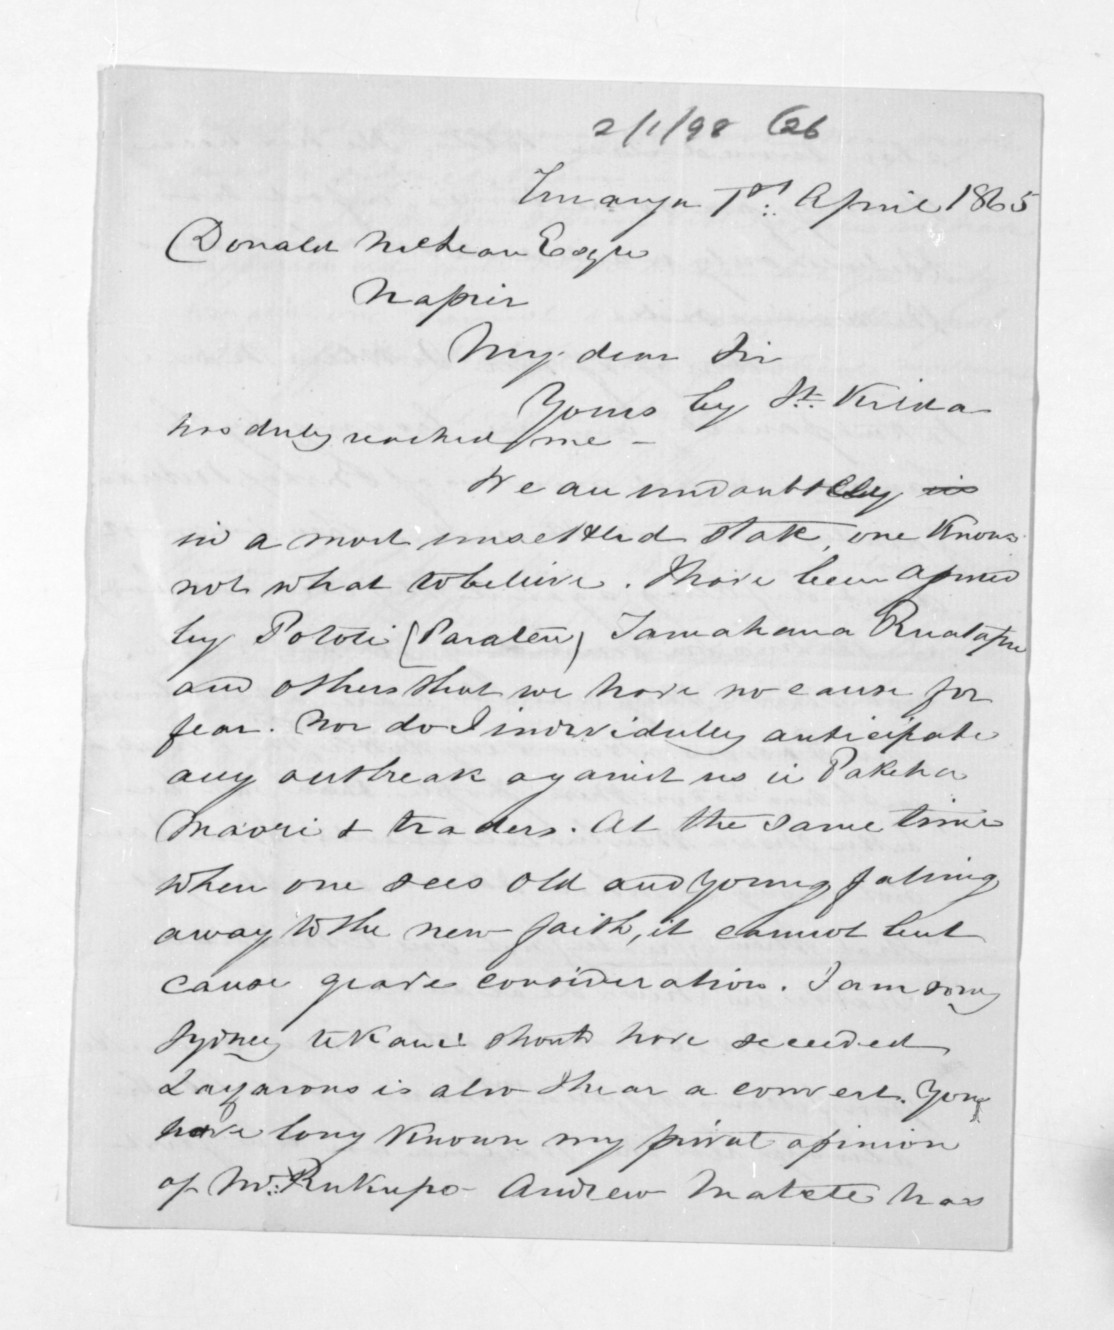 2/1/98 626
Turanga 1st: April 1865
Donald McLean Esqre
Napier
My dear Sir
Yours by St. Kilda
has duly reached me -
We are undoubtedly is
in a most unsettled state, one knows
not what to believe. I have been assured
by Pototi (Paratene) Tamahana Ruatapu
and others that we have no cause for
fear. Nor do I individully anticipate
any outbreak against us ie Pakeha
Maori & traders. At the same time
when one sees old and young falling
away to the new faith, it cannot but
cause grave consideration. I am sorry
Sydney te Kawe: should have seceeded
Lazarous is also I hear a convert. You
have long known my privat opinion
of Mr: Rukupo - Andrew Matete has